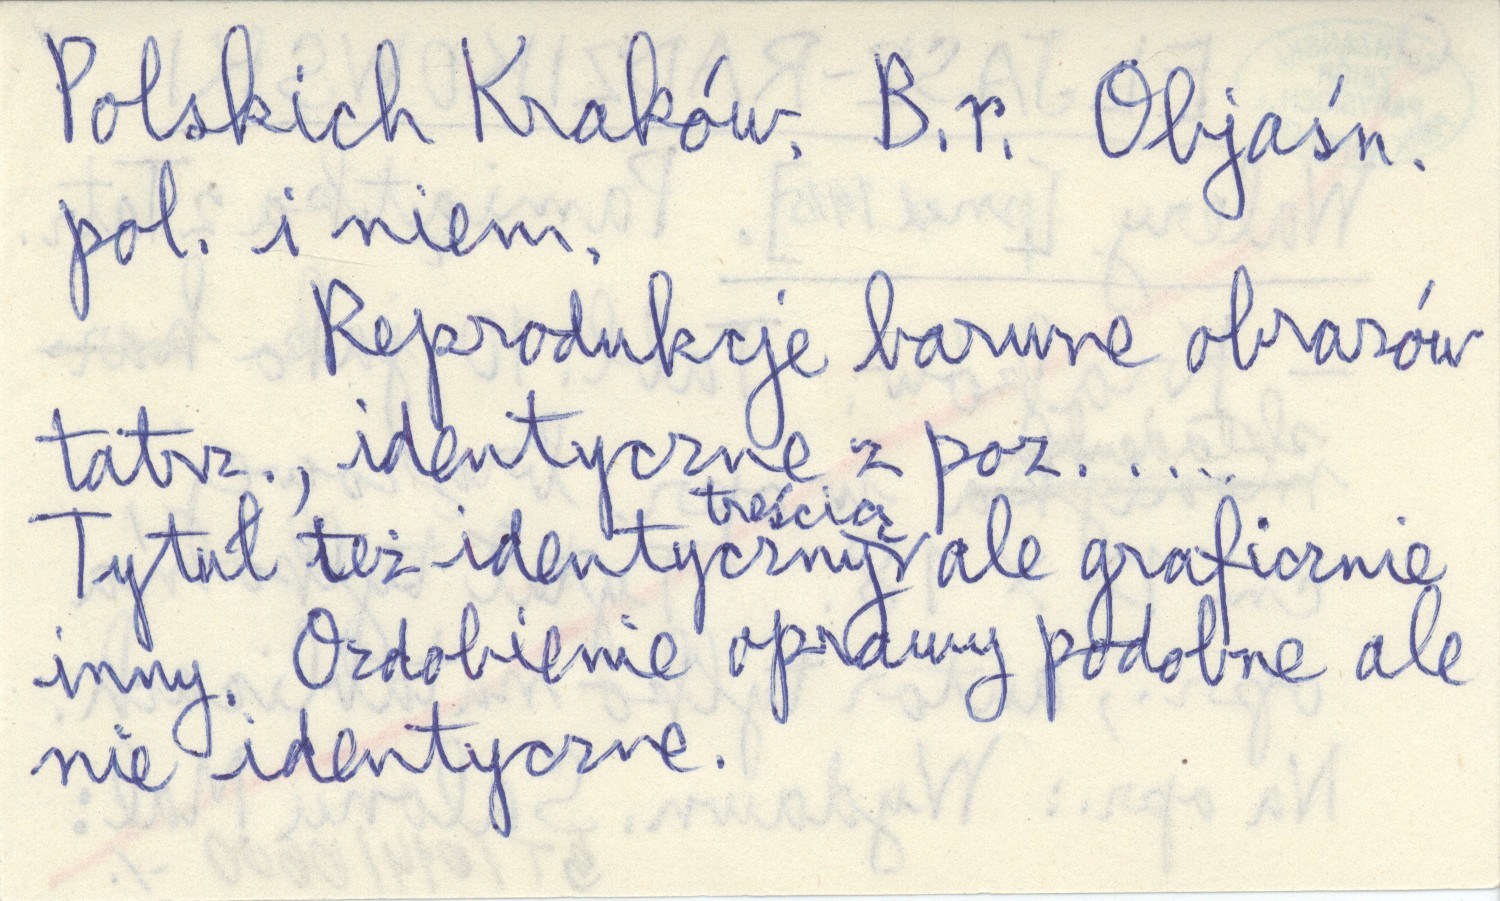 Polskich Kraków. B.r. Objaśn.
pol. i niem.
Reprodukcje barwne obrazów
tatrz., identyczne z poz. ....
Tytuł też identyczny treścią ale graficznie
inny. Ozdobienie oprawy podobne ale
nie identyczne.